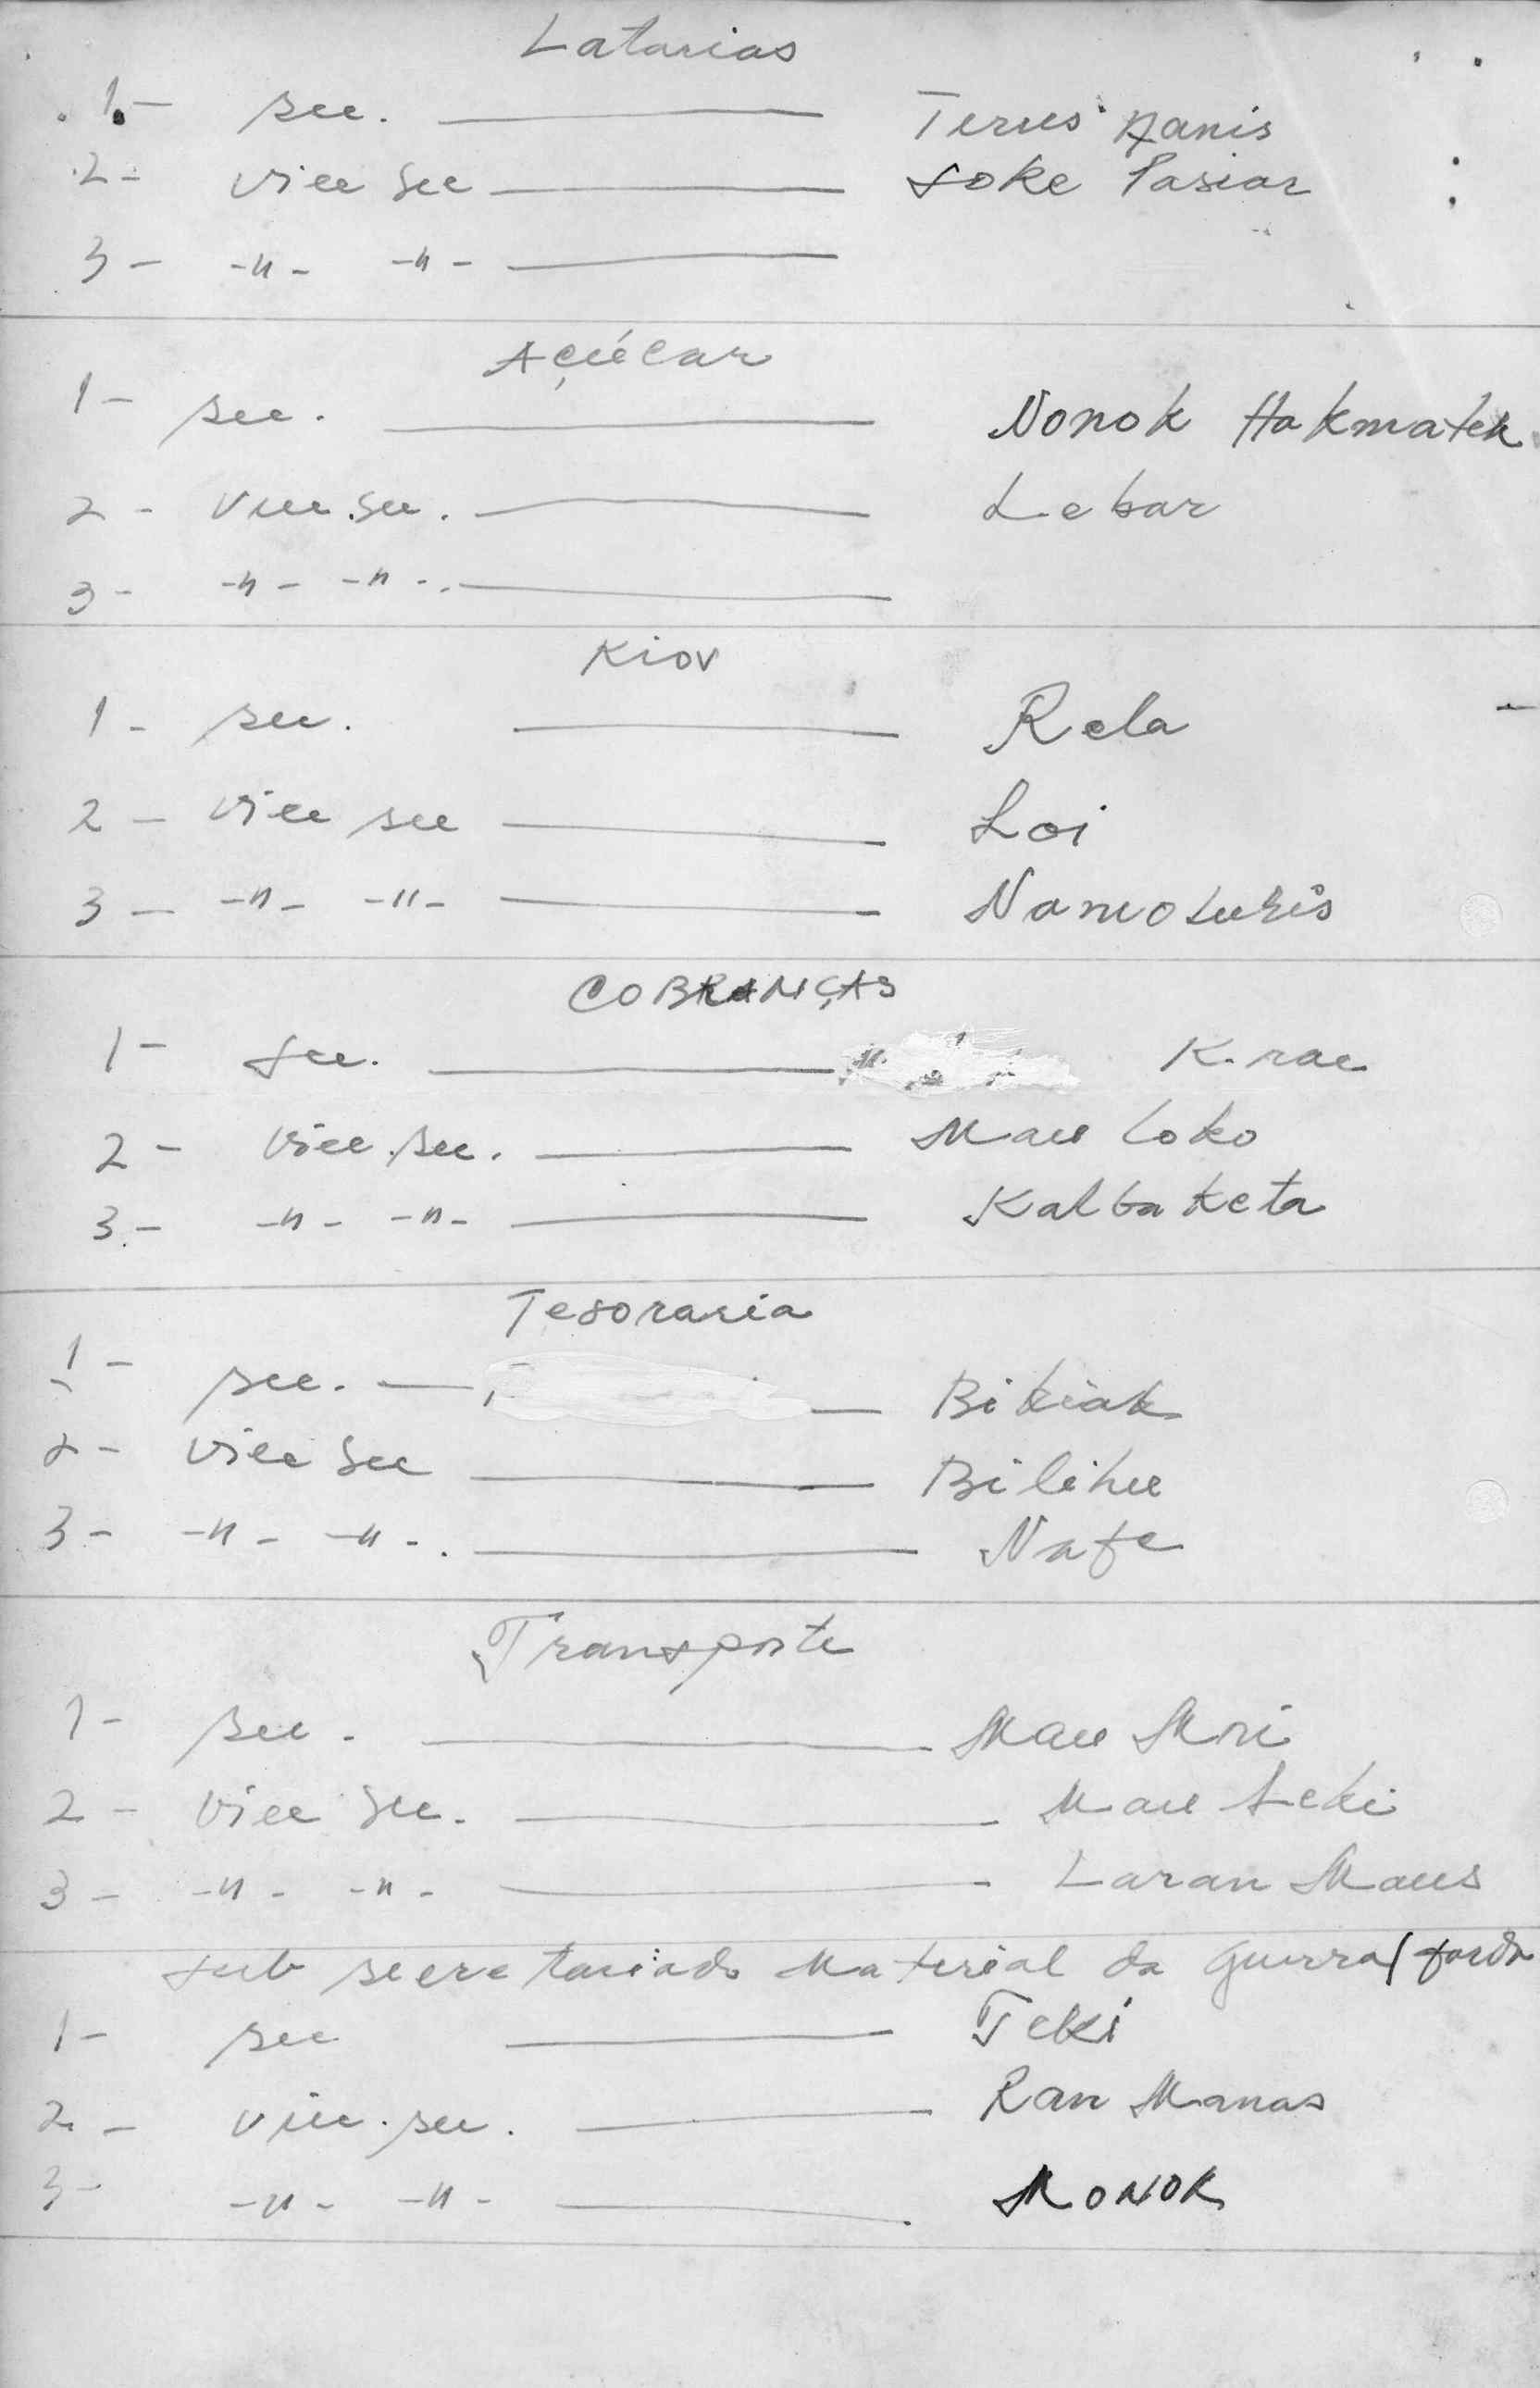 Latarias
1- sec. Terus Nanis
2- vice sec Soke Pasiar
3- -"- -"-
Açúcar
1- sec. Nonok Hakmatek
2- vice sec. Lebar
3- -"- -"-
Kiov
1- sec. Rela
2- vice sec Loi
3- -"- -"- Namoturis
COBRANÇAS
1- sec. K. rae
2- vice sec. Mau Loko
3- -"- -"- Kalbaketa
Tesoraria
1- sec. Bikiak
2- vice sec Bilihu
3- -"- -"- Nafe
Transporte
1- sec. Mau Mori
2- vice sec. Mau Leki
3- -"- -"- Laran Maus
sub secretariado Material da Guerra/farda
1- sec Teki
2- vice sec. Ran Manas
3- -"- -"- MONOK